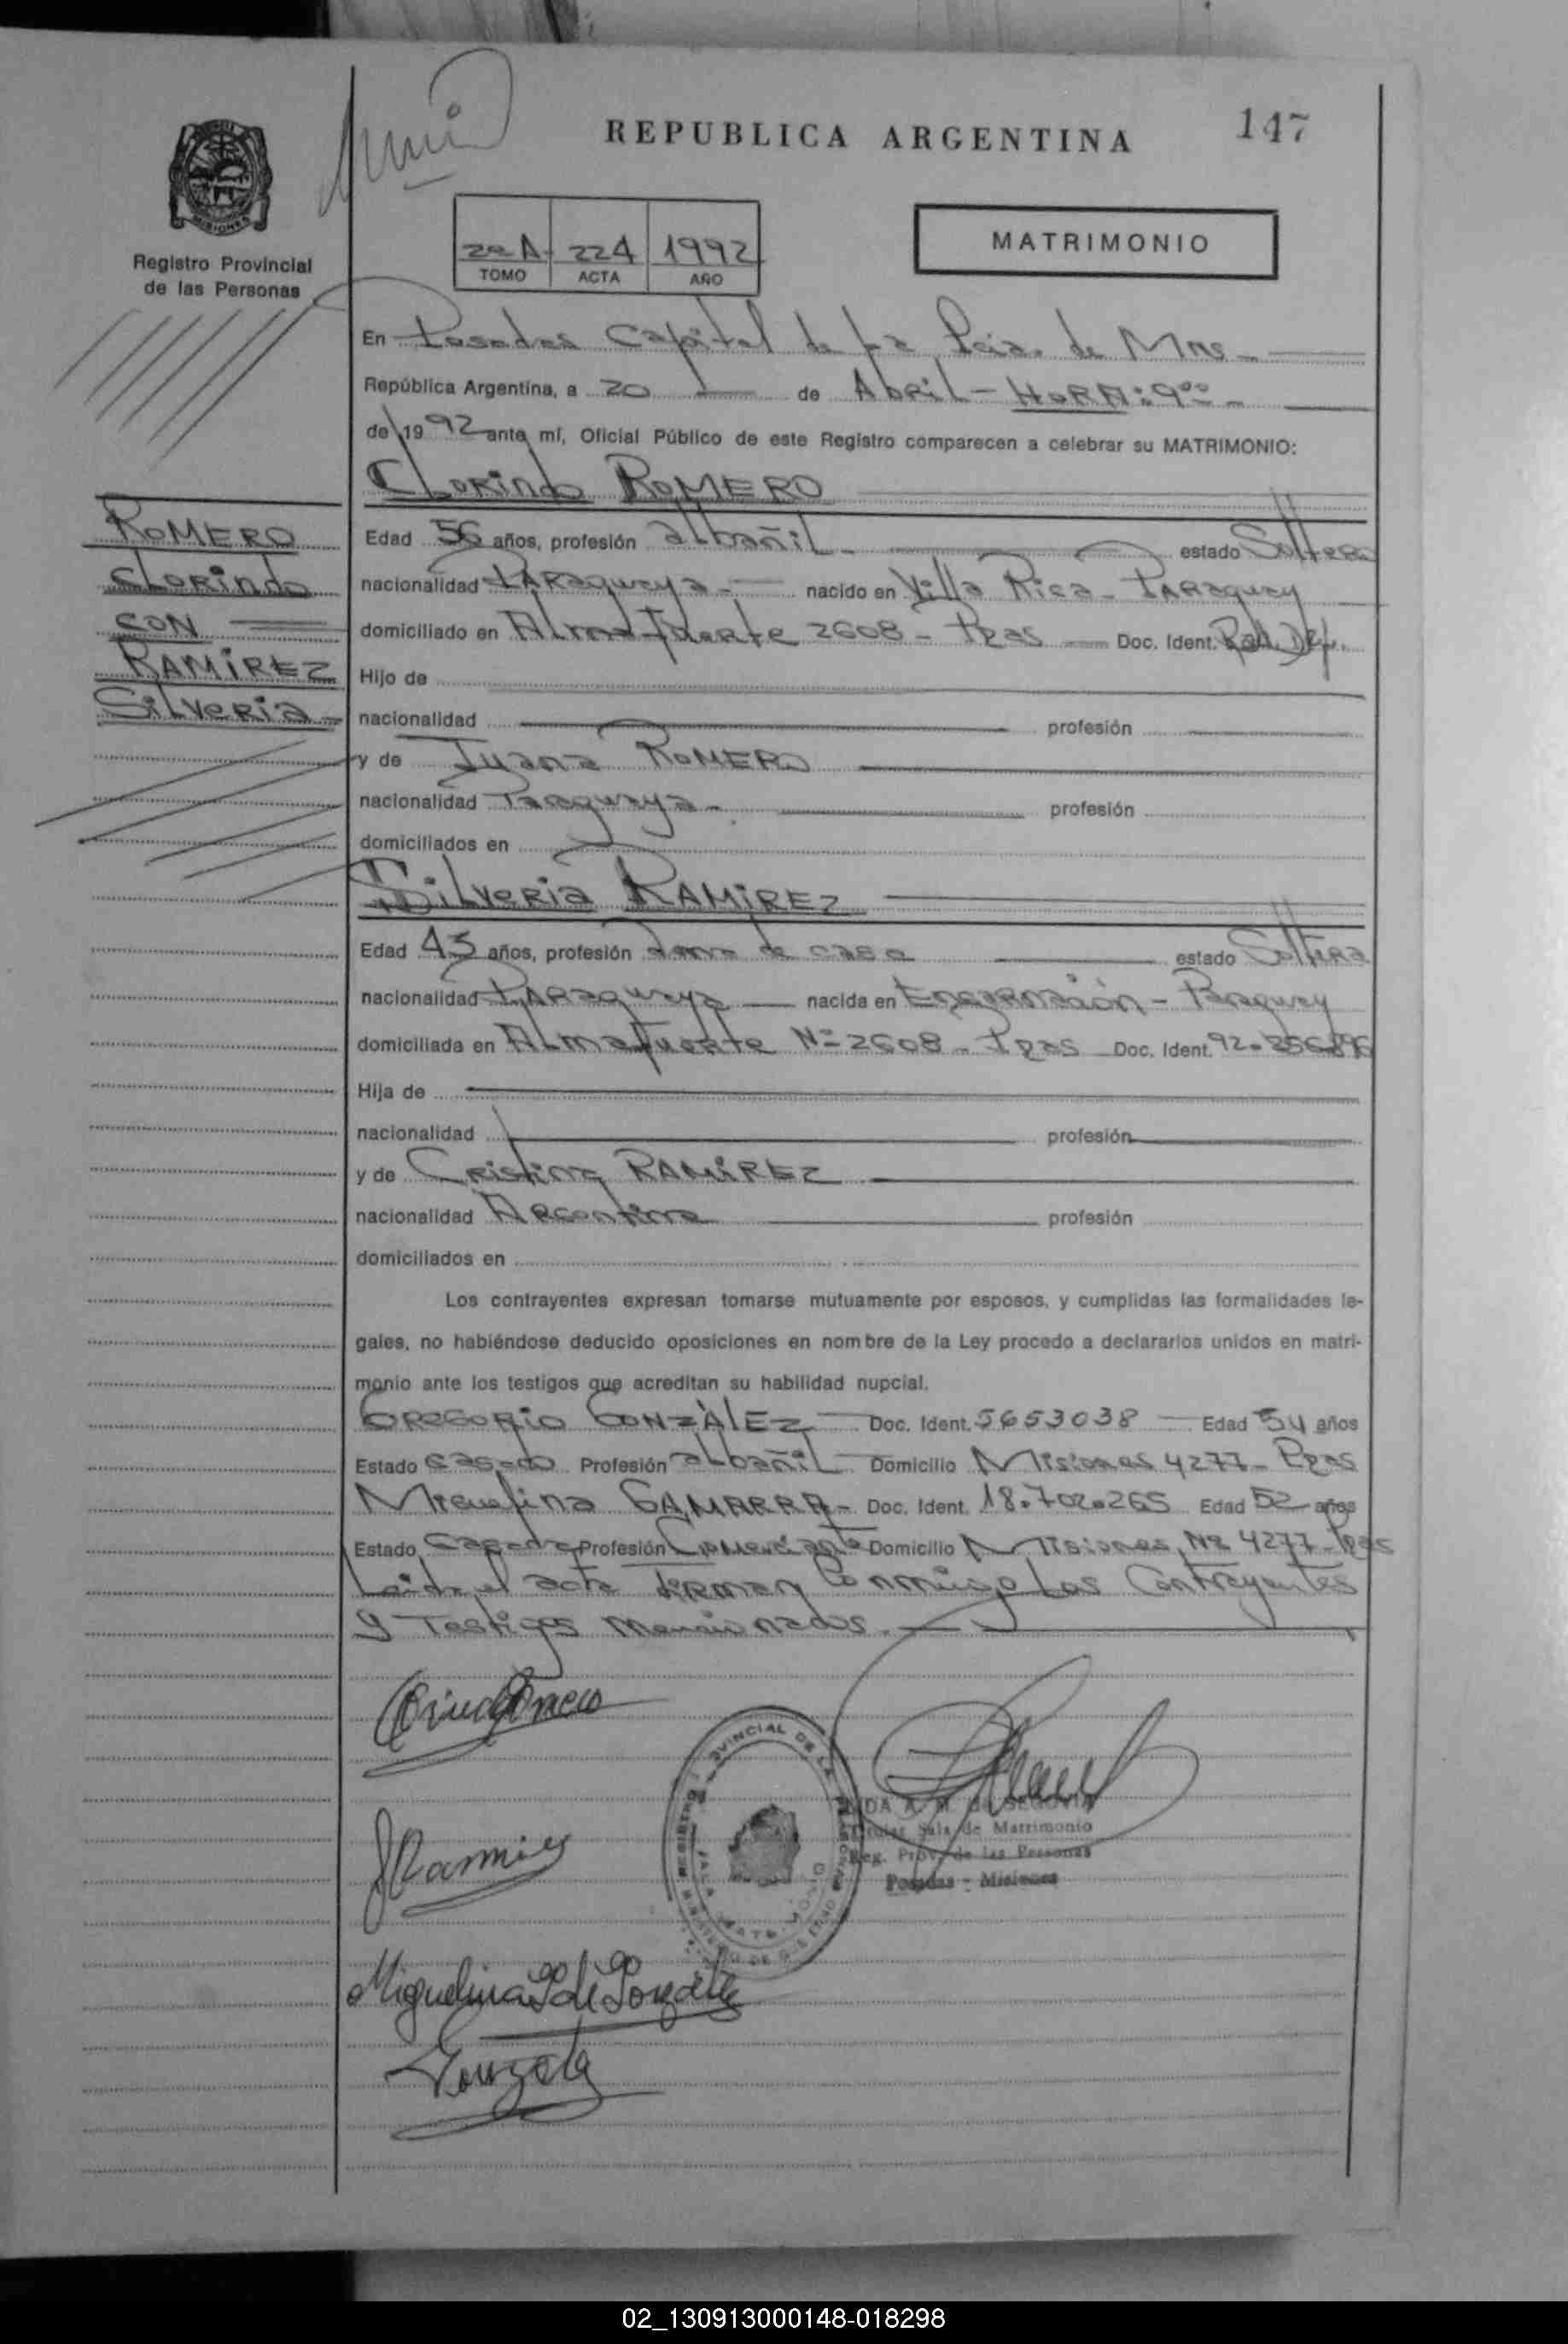 147
REPUBLICA ARGENTINA
MISIONES
Registro Provincial
de las Personas
2º A 224 1992
TOMO ACTA AÑO
MATRIMONIO
En Posadas Capital de La Pcia. de Mnes
República Argentina, a 20 de Abril - HORA: 9ºº -
de 1992 ante mí, Oficial Público de este Registro comparecen a celebrar su MATRIMONIO:
CLORINDO ROMERO
ROMERO
CLORINDO
CON
RAMIREZ
SILVERIA
Edad 56 años, profesión albañil estado Soltero
nacionalidad PARAguaya nacido en Villa Rica - PARAguay
domiciliado en Almafuerte 2608 - Pdas Doc. Ident.
Hijo de
nacionalidad profesión
y de Juana ROMERO
nacionalidad Paraguaya - profesión
domiciliados en
SILVERIA RAMIREZ
Edad 43 años, profesión ama de casa estado Soltera
nacionalidad PARAguaya nacida en Encarnación - Paraguay
domiciliada en ALmafuerte Nº 2608 - Pdas Doc. Ident. 92.
Hija de
nacionalidad profesión
y de Cristina RAMIREZ
nacionalidad Argentina profesión
domiciliados en
Los contrayentes expresan tomarse mutuamente por esposos, y cumplidas las formalidades le-
gales, no habiéndose deducido oposiciones en nombre de la Ley procedo a declararlos unidos en matri-
monio ante los testigos que acreditan su habilidad nupcial.
GREGORIO GONZÀLEZ Doc. Ident. 5653038 Edad 54 años
Estado casado Profesión albañil Domicilio Misiones 4277 - Pdas
Miguelina GAMARRA - Doc. Ident. 18.702.265 Edad 52 años
Estado casada Profesión Comerciante Domicilio Misiones Nº 4277 - Pdas
Leida el acta FIRMAN Conmigo Los Contrayentes
y Testigos Mencionados.
Miguelina G de González
DA A. M. de SEGOVIA
Titular Sala de Matrimonio
Reg. Prov. de las Personas
Posadas - Misiones
02_130913000148-018298